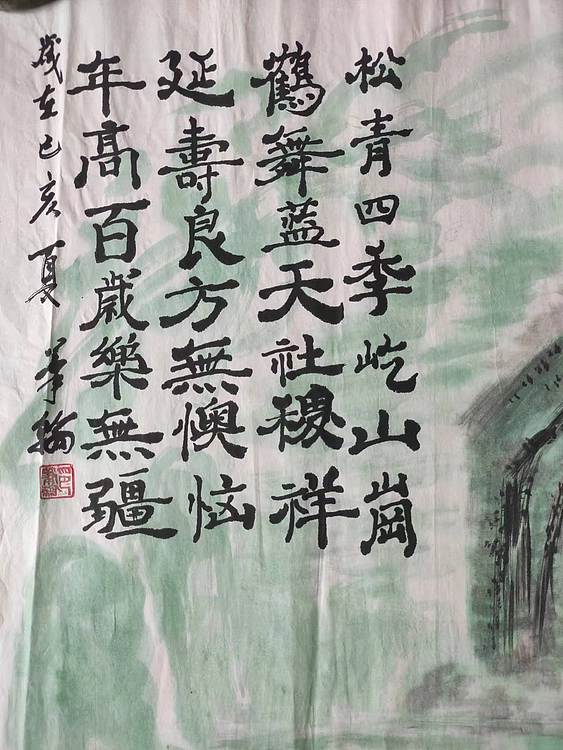 松青四季屹山崗
鶴舞藍天社稷祥
延壽良方無懊恼
年高百歲樂無疆
歲在己亥夏